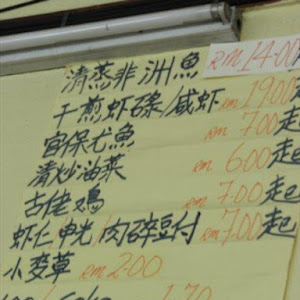 清蒸非洲魚 RM 14.00
干煎虾碌/咸虾 RM 19.00起
宫保尤魚 RM 7.00起
清炒油菜 RM 6.00起
古佬鸡 RM 7.00起
虾仁申光/肉碎豆付 RM 7.00起
小麦草 RM 2.00
1.70